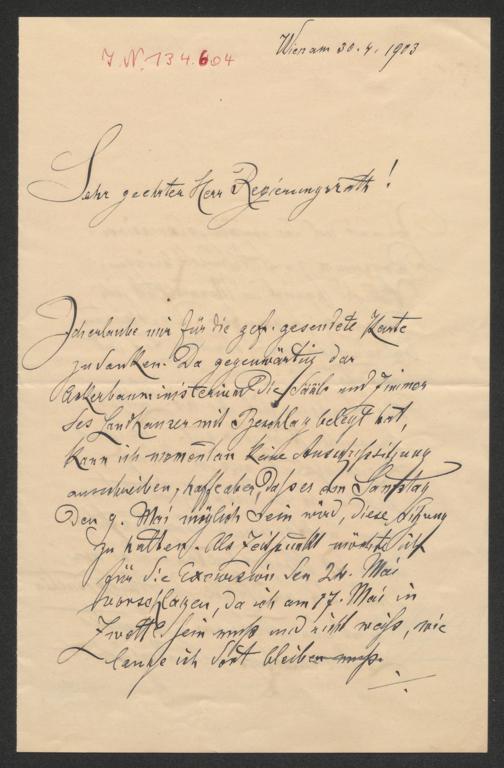 Wien am 30.4.1903
I.N. 134.604
Sehr geehrter Herr Regierungsrath!
Ich erlaube mir für die gef. gesendete Karte
zu danken. Da gegenwärtig das
Ackerbauministerium die Säule und Zimmer
des mit Beschlag belegt hat,
kann ich momentan keine Ausschußsitzung
ausschreiben, hoffe aber, daß es am Samstag
den 9. Mai möglich sein wird, diese Sitzung
zu halten. Als Zeitpunkt möchte ich
für die Excursion den 24. Mai
vorschlagen, da ich am 17. Mai in
Zwettl sein muß und nicht weiß, wie
lange ich dort bleiben muß.